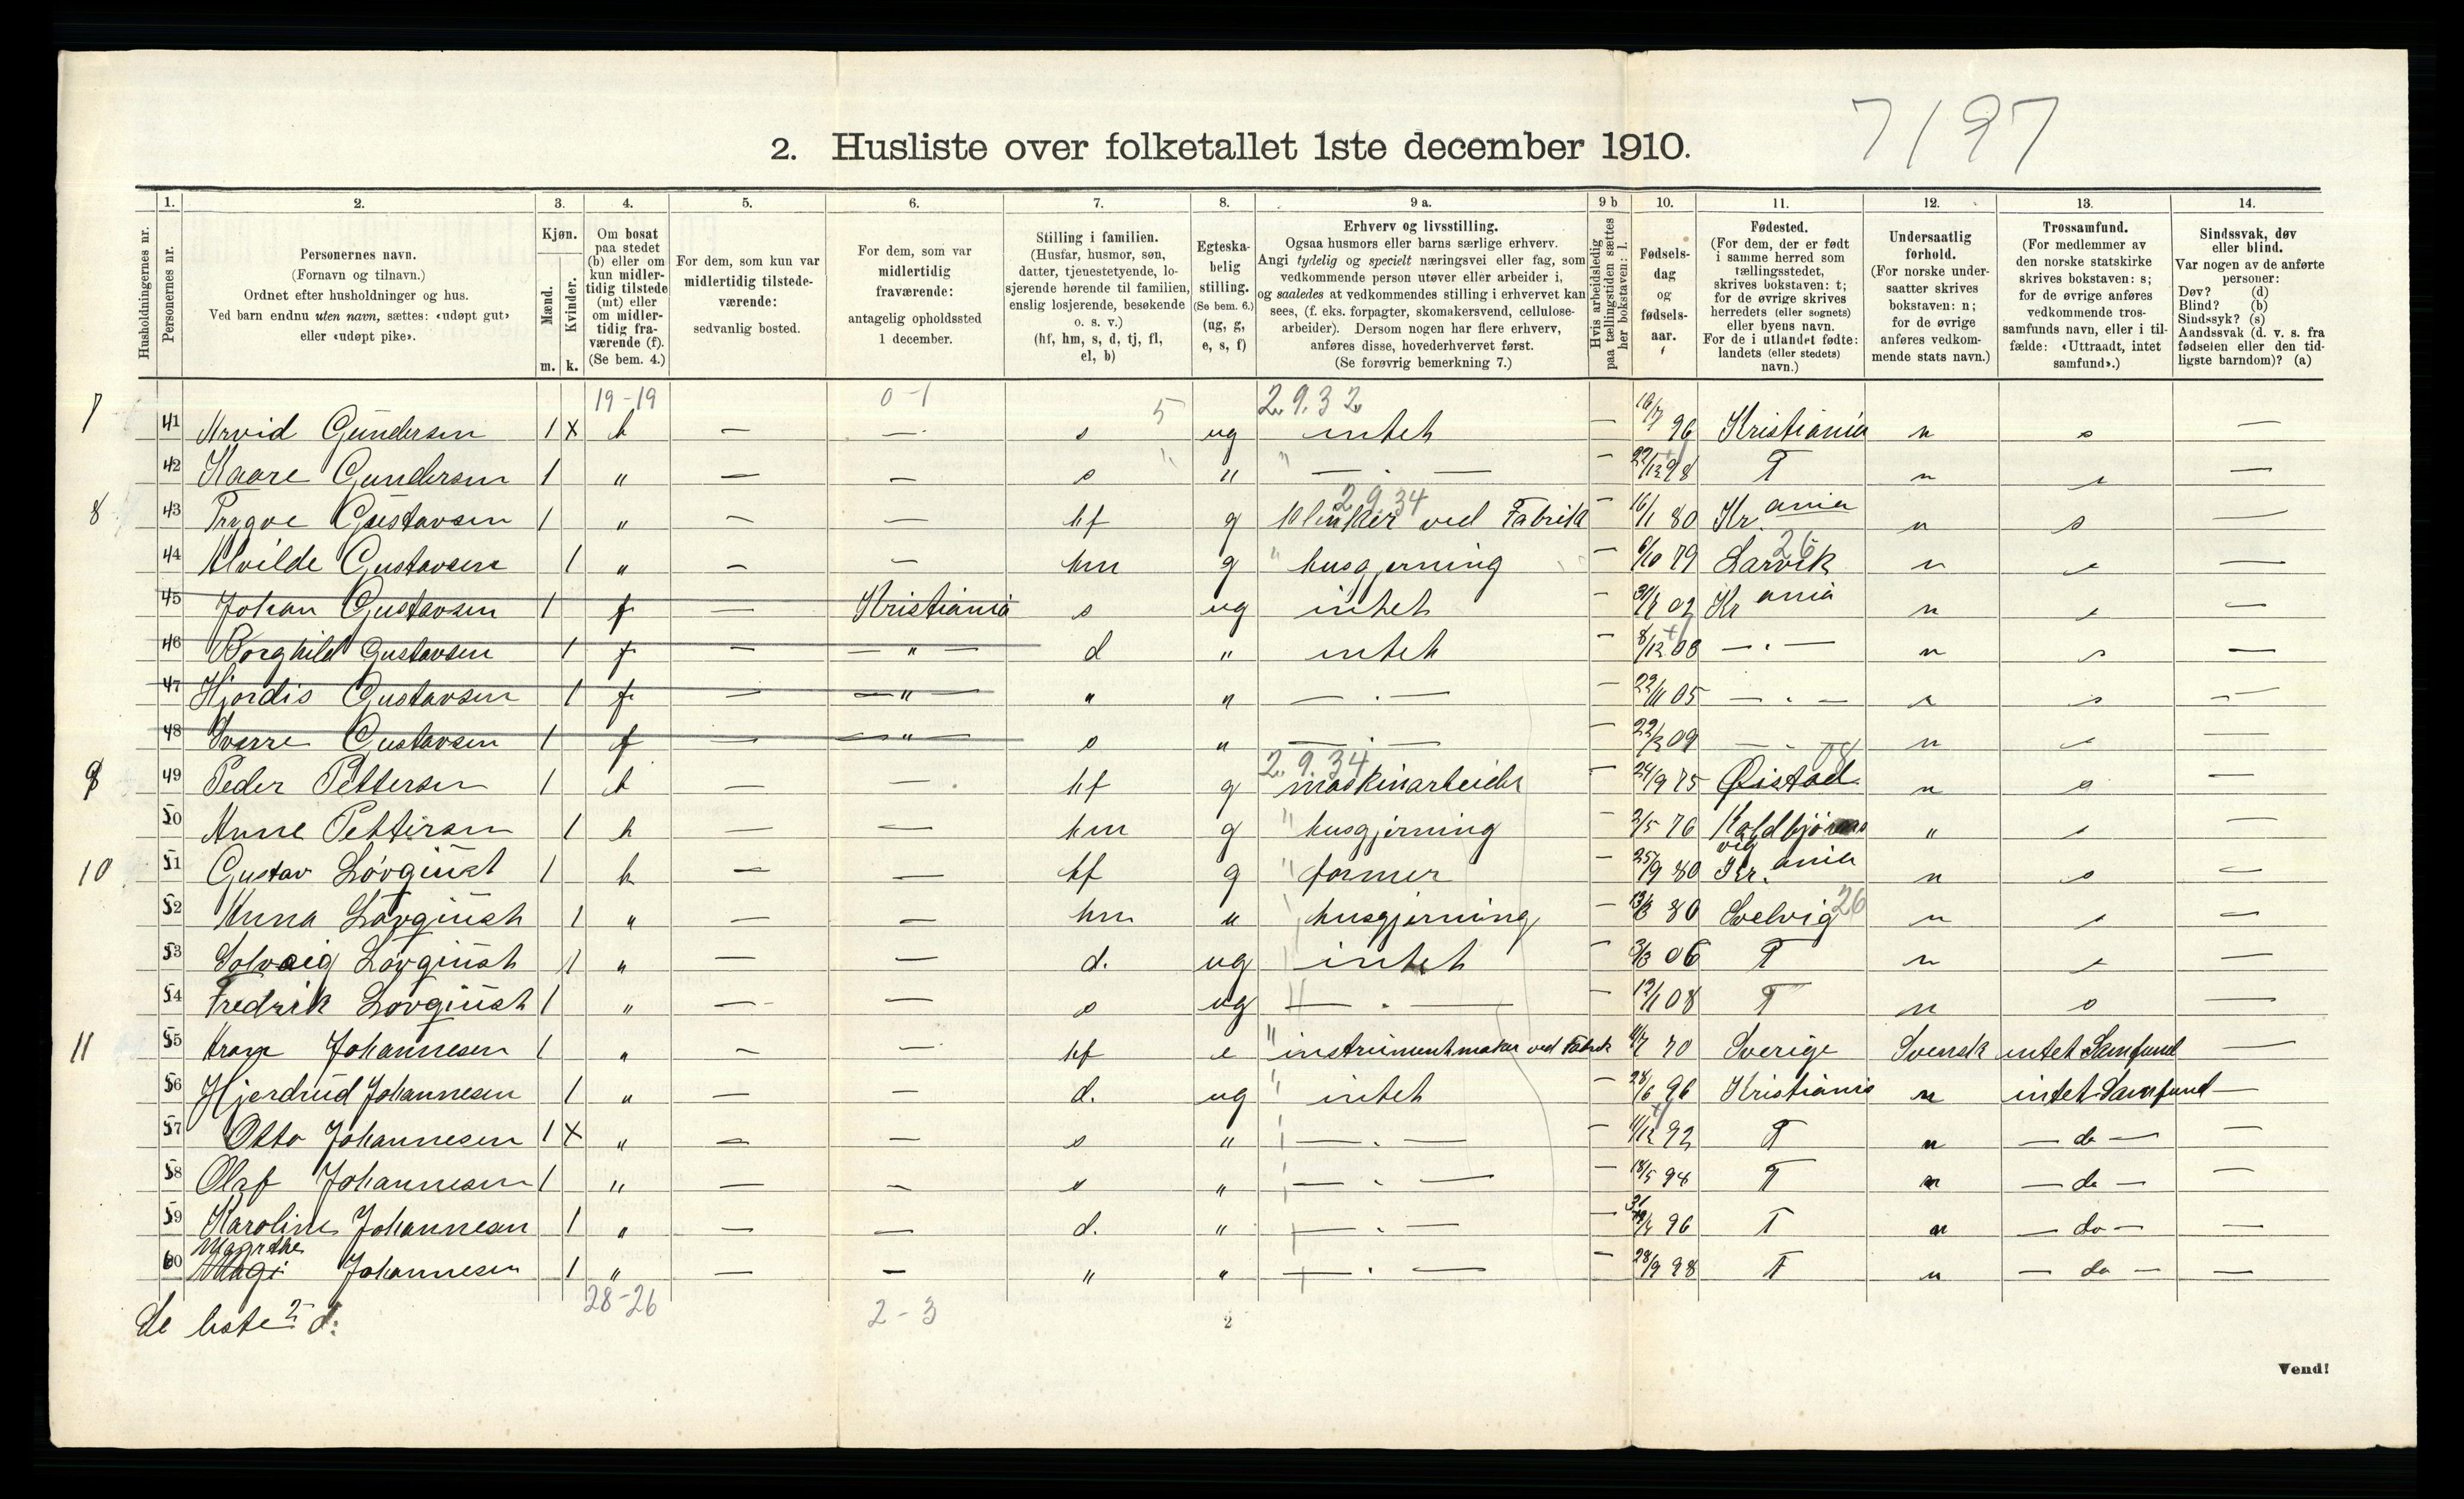 7197
2. Husliste over folketallet 1ste december 1910.
Husholdningernes nr.
1. Personernes nr.
2. Personernes navn.
(Fornavn og tilnavn.)
Ordnet efter husholdninger og hus.
Ved barn endnu uten navn, sættes: «udøpt gut»
eller «udøpt pike».
3. Kjøn.
Mænd. m.
Kvinder. k.
4. Om bosat
paa stedet
(b) eller om
kun midler-
tidig tilstede
(mt) eller
om midler-
tidig fra-
værende (f).
(Se bem. 4.)
5. For dem, som kun var
midlertidig tilstede-
værende:
sedvanlig bosted.
6. For dem, som var
midlertidig
fraværende:
antagelig opholdssted
1 december.
7. Stilling i familien.
(Husfar, husmor, søn,
datter, tjenestetyende, lo-
sjerende hørende til familien,
enslig losjerende, besøkende
o. s. v.)
(hf, hm, s, d, tj, fl,
el, b)
8. Egteska-
belig
stilling.
(Se bem. 6.)
(ug, g,
e, s, f)
9 a. Erhverv og livsstilling.
Ogsaa husmors eller barns særlige erhverv.
Angi tydelig og specielt næringsvei eller fag, som
vedkommende person utøver eller arbeider i,
og saaledes at vedkommendes stilling i erhvervet kan
sees, (f. eks. forpagter, skomakersvend, cellulose-
arbeider). Dersom nogen har flere erhverv,
anføres disse, hovederhvervet først.
(Se forøvrig bemerkning 7.)
9 b Hvis arbeidsledig
paa tællingstiden sættes
her bokstaven: l.
10. Fødsels-
dag
og
fødsels-
aar.
11. Fødested.
(For dem, der er født
i samme herred som
tællingsstedet,
skrives bokstaven: t;
for de øvrige skrives
herredets (eller sognets)
eller byens navn.
For de i utlandet fødte:
landets (eller stedets)
navn.)
12. Undersaatlig
forhold.
(For norske under-
saatter skrives
bokstaven: n;
for de øvrige
anføres vedkom-
mende stats navn.)
13. Trossamfund.
(For medlemmer av
den norske statskirke
skrives bokstaven: s;
for de øvrige anføres
vedkommende tros-
samfunds navn, eller i til-
fælde: «Uttraadt, intet
samfund».)
14. Sindssvak, døv
eller blind.
Var nogen av de anførte
personer:
Døv? (d)
Blind? (b)
Sindssyk? (s)
Aandssvak (d. v. s. fra
fødselen eller den tid-
ligste barndom)? (a)
19-19 0-1 5 2.9.32
7 41 Arvid Gundersen 1 x b — — s ug intet — 16/7 96 Kristiania n s —
42 Kaare Gundersen 1 " — — s " — " — — 22/12 98 T n s —
2.9.34
8 43 Trygve Gustavsen 1 " — — hf g klinker ved Fabrik — 16/1 80 Kr.ania n s —
44 Alvilde Gustavsen 1 " — — hm g husgjerning — 6/10 79 Larvik 26 n s —
45 Johan Gustavsen 1 f — Kristiania s ug intet — 02 Kr ania n s —
46 Borghild Gustavsen 1 f — — " — d " intet — 8/12 03 — " — n s —
47 Hjordis Gustavsen 1 f — — " — " " — " — — 05 — " — n s —
48 Sverre Gustavsen 1 f — — " — s " — " — — 09 — " — n s —
2.9.34 08
9 49 Peder Pettersen 1 b — — hf g maskinarbeider — 24/9 75 Øistad n s —
50 Anne Pettersen 1 b — — hm g husgjerning — 3/5 76 " s —
10 51 Gustav Lövginst 1 b — — hf g former — 25/9 80 Kr.ania n s —
52 Anna Lövginst 1 " — — hm " husgjerning — 80 Svelvig 26 n s —
53 Solveig Lövginst 1 " — — d. ug intet — 3/3 06 T n s —
54 Fredrik Lövginst 1 " — — s ug — " — — 12/1 08 T n s —
11 55 Johannesen 1 " — — hf e instrumentmaker ved Fabrik 11/7 70 Sverige Svensk intet Samfund —
56 Hjerdrud Johannesen 1 " — — d. ug intet — 28/6 96 Kristiania n intet Samfund —
57 Otto Johannesen 1 x " — — s " — " — — 11/12 92 T n — do — —
58 Olaf Johannesen 1 " — — s " — " — — 18/5 94 T n — do — —
59 Karoline Johannesen 1 " — — d. " — " — — 96 T n — do — —
60 Magrethe Johannesen 1 " — — " " — " — — 28/9 98 T n — do — —
28-26 2-3 2
Vend!